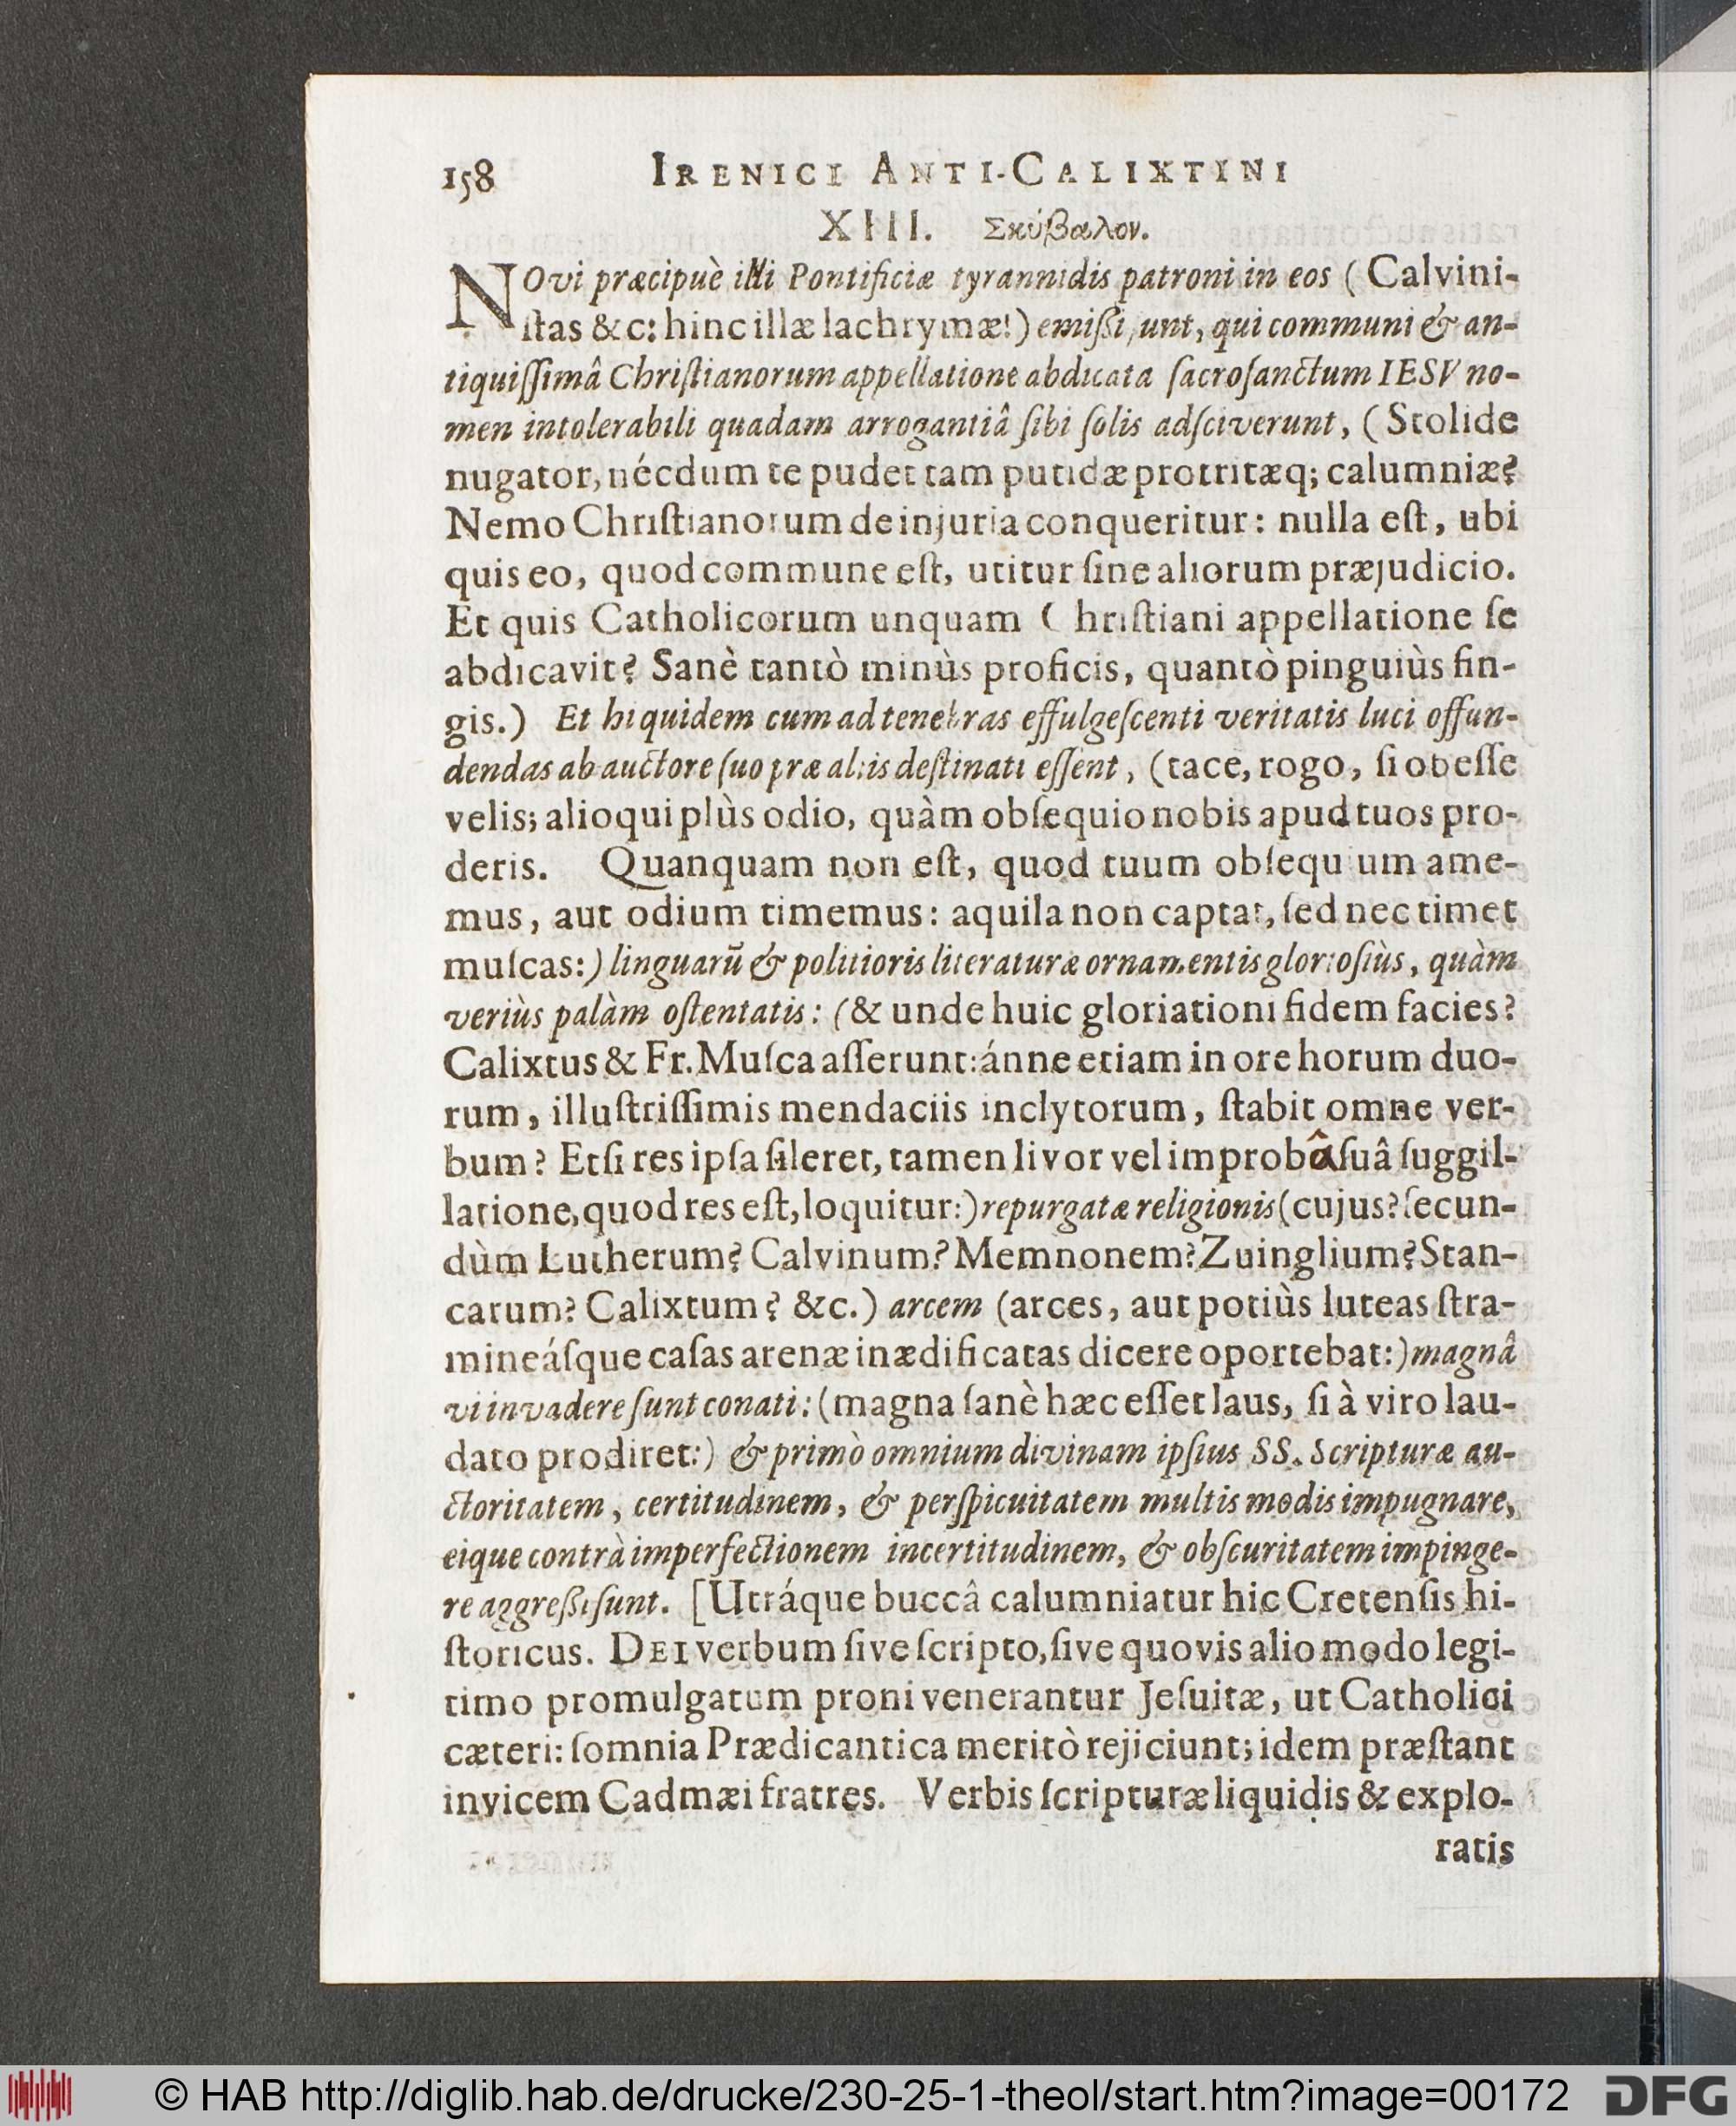 158 IRENICI ANTI-CALIXTINI
XIII. Σκύβαλον.
NOvi præcipuè illi Pontificiæ tyrannidis patroni in eos (Calvini-
ſtas &c: hinc illæ lachrymæ!) emißi ſunt, qui communi & an-
tiquiſſimâ Chriſtianorum appellatione abdicata ſacroſanctum IESV no-
men intolerabili quadam arrogantiâ ſibi ſolis adſciverunt, (Stolide
nugator, nécdum te pudet tam putidæ protritæq; calumniæ?
Nemo Chriſtianorum de injuria conqueritur: nulla eſt, ubi
quis eo, quod commune eſt, utitur ſine aliorum præjudicio.
Et quis Catholicorum unquam Chriſtiani appellatione ſe
abdicavit? Sanè tantò minùs proficis, quantò pinguiùs fin-
gis.) Et hi quidem cum ad tenebras effulgeſcenti veritatis luci offun-
dendas ab auctore ſuo præ aliis deſtinati eſſent, (tace, rogo, ſi obeſſe
velis; alioqui plùs odio, quàm obſequio nobis apud tuos pro-
deris. Quanquam non eſt, quod tuum obſequium ame-
mus, aut odium timemus: aquila non captat, ſed nec timet
muſcas:) linguarũ & politioris literaturæ ornamentis glorioſiùs, quàm
veriùs palàm oſtentatis: (& unde huic gloriationi fidem facies?
Calixtus & Fr. Muſca aſſerunt: ánne etiam in ore horum duo-
rum, illuſtriſſimis mendaciis inclytorum, ſtabit omne ver-
bum? Etſi res ipſa ſileret, tamen livor vel improbâ ſuâ ſuggil-
latione, quod res eſt, loquitur:) repurgatæ religionis (cujus? ſecun-
dùm Lutherum? Calvinum? Memnonem? Zuinglium? Stan-
carum? Calixtum? &c.) arcem (arces, aut potiùs luteas ſtra-
mineáſque caſas arenæ inædificatas dicere oportebat:) magnâ
vi invadere ſunt conati: (magna ſanè hæc eſſet laus, ſi à viro lau-
dato prodiret:) & primò omnium divinam ipſius SS. Scripturæ au-
ctoritatem, certitudinem, & perſpicuitatem multis modis impugnare,
eique contrà imperfectionem incertitudinem, & obſcuritatem impinge-
re aggreßi ſunt. [Utráque buccâ calumniatur hic Cretenſis hi-
ſtoricus. DEI verbum ſive ſcripto, ſive quovis alio modo legi-
timo promulgatum proni venerantur Jeſuitæ, ut Catholici
cæteri: ſomnia Prædicantica meritò rejiciunt; idem præſtant
invicem Cadmæi fratres. Verbis ſcripturæ liquidis & explo-
ratis
© HAB http://diglib.hab.de/drucke/230-25-1-theol/start.htm?image=00172 DFG